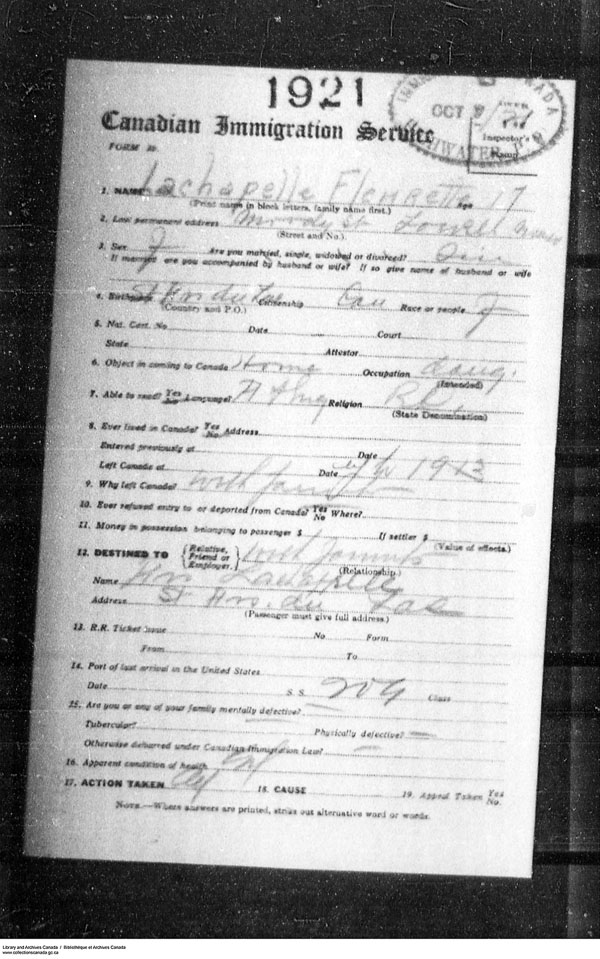 1921
OCT
Inspector's
Canadian Immigration Service
FORM 30
1. NAME Lachapelle 17
(Print name in block letters, family name first.)
2. Last permanent address Moody St Lowell
(Street and No.)
3. Sex F Are you married, single, widowed or divorced?
If married are you accompanied by husband or wife? If so give name of husband or wife
4. Birthplace Citizenship Can Race or people F
(Country and P.O.)
5. Nat. Cert. No. Date Court
State Attestor
6. Object in coming to Canada Home Occupation daug.
(Intended)
7. Able to read? Yes No Language? Religion R.C.
(State Denomination)
8. Ever lived in Canada? Yes No Address
Entered previously at Date
Left Canada at Date 1913
9. Why left Canada? with
10. Ever refused entry to or deported from Canada? Yes No Where?
11. Money in possession belonging to passenger $ If settler $
(Value of effects.)
12. DESTINED TO {Relative, Friend or Employer.} with
(Relationship.)
Name
Address St
(Passenger must give full address.)
13. R.R. Ticket Issue No Form
From To
14. Port of last arrival in the United States
Date S. S. Class
15. Are you or any of your family mentally defective? —
Tubercular? Physically defective? —
Otherwise debarred under Canadian Immigration Law? —
16. Apparent condition of health
17. ACTION TAKEN 18. CAUSE 19. Appeal Taken Yes No.
NOTE.—Where answers are printed, strike out alternative word or words.
Library and Archives Canada / Bibliothèque et Archives Canada
www.collectionscanada.gc.ca